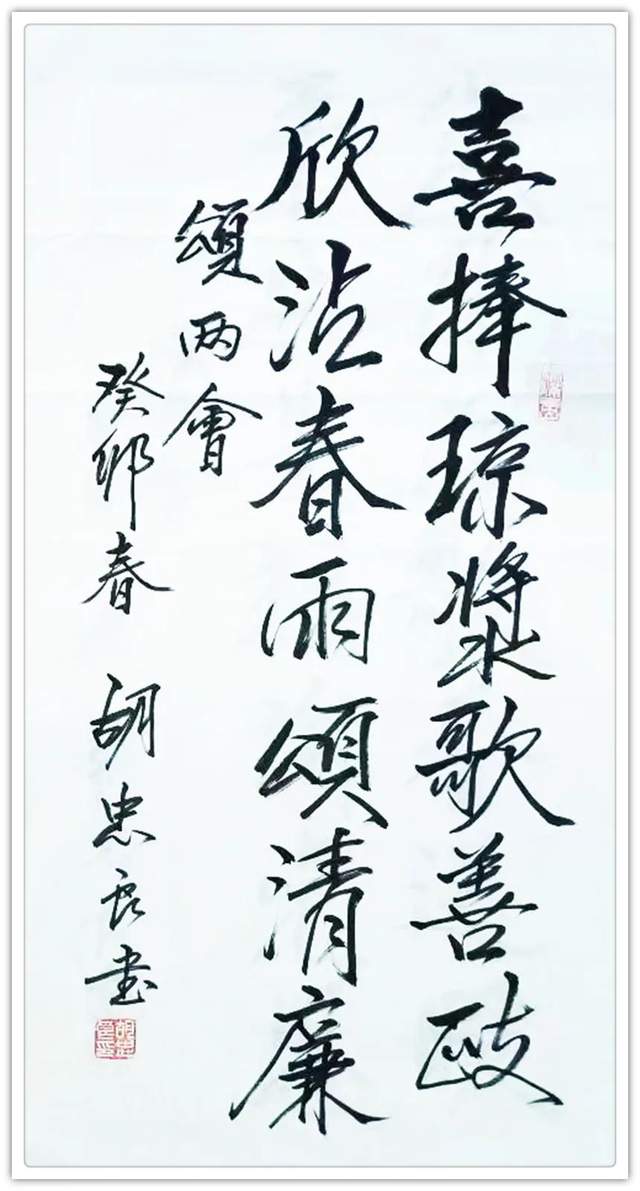 喜捧琼漿歌善政
欣沾春雨頌清廉
頌两會
癸卯春 胡忠良書